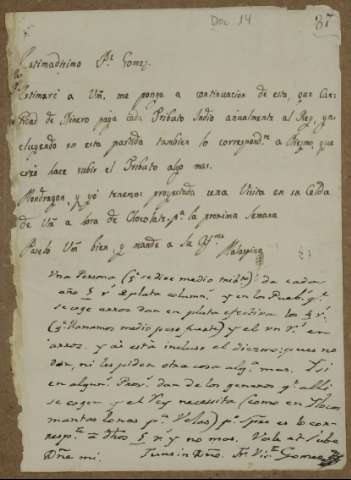 Doc. 14
87
Estimadisimo Pe. Gomez.
Estimaré à Vm, me ponga a continuacion de esta, que Can-
tidad de Dinero paga cada Tributo Indio anualmente al Rey, yn-
cluyendo en esta partida tambien lo correspondte a Diezmo, que
creo hace subir el Tributo algo mas.
Mondragon, y yó tenemos proyectada una Visita en su Celda
de Vm à hora de Chocolate, pa. la proxima Semana
Paselo Vm bien, y mande a su
Malaspina
Una Persona (qe. se dice medio ) da cada
año 5 rs. plata column. y en los Puebs. qe.
se coge arroz dan en plata efectiva los
(qe. llamamos medio peso fuerte) y el un rl. en
arroz. y aí está incluso el diezmo: pues no
dan, ni les piden otra cosa alga. mas. Y si
en algun dan de los generos qe. alli
se cogen y el Rey necessita (como en Ilocos
mantas, lonas pa. Velas) pr. es lo cor-
resp. dhos 5 rs. y no mas. Vale et
mi. Tuus in Dno. Fr. Vic. Gomez